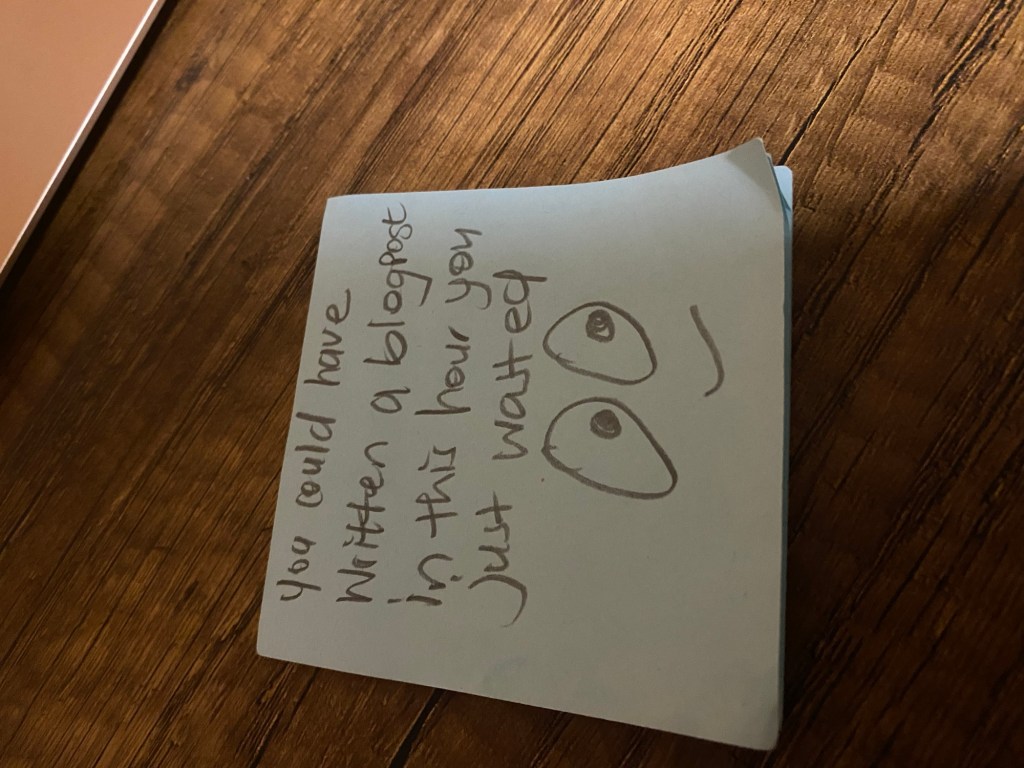 you could have
written a blogpost
in this hour you
just waited